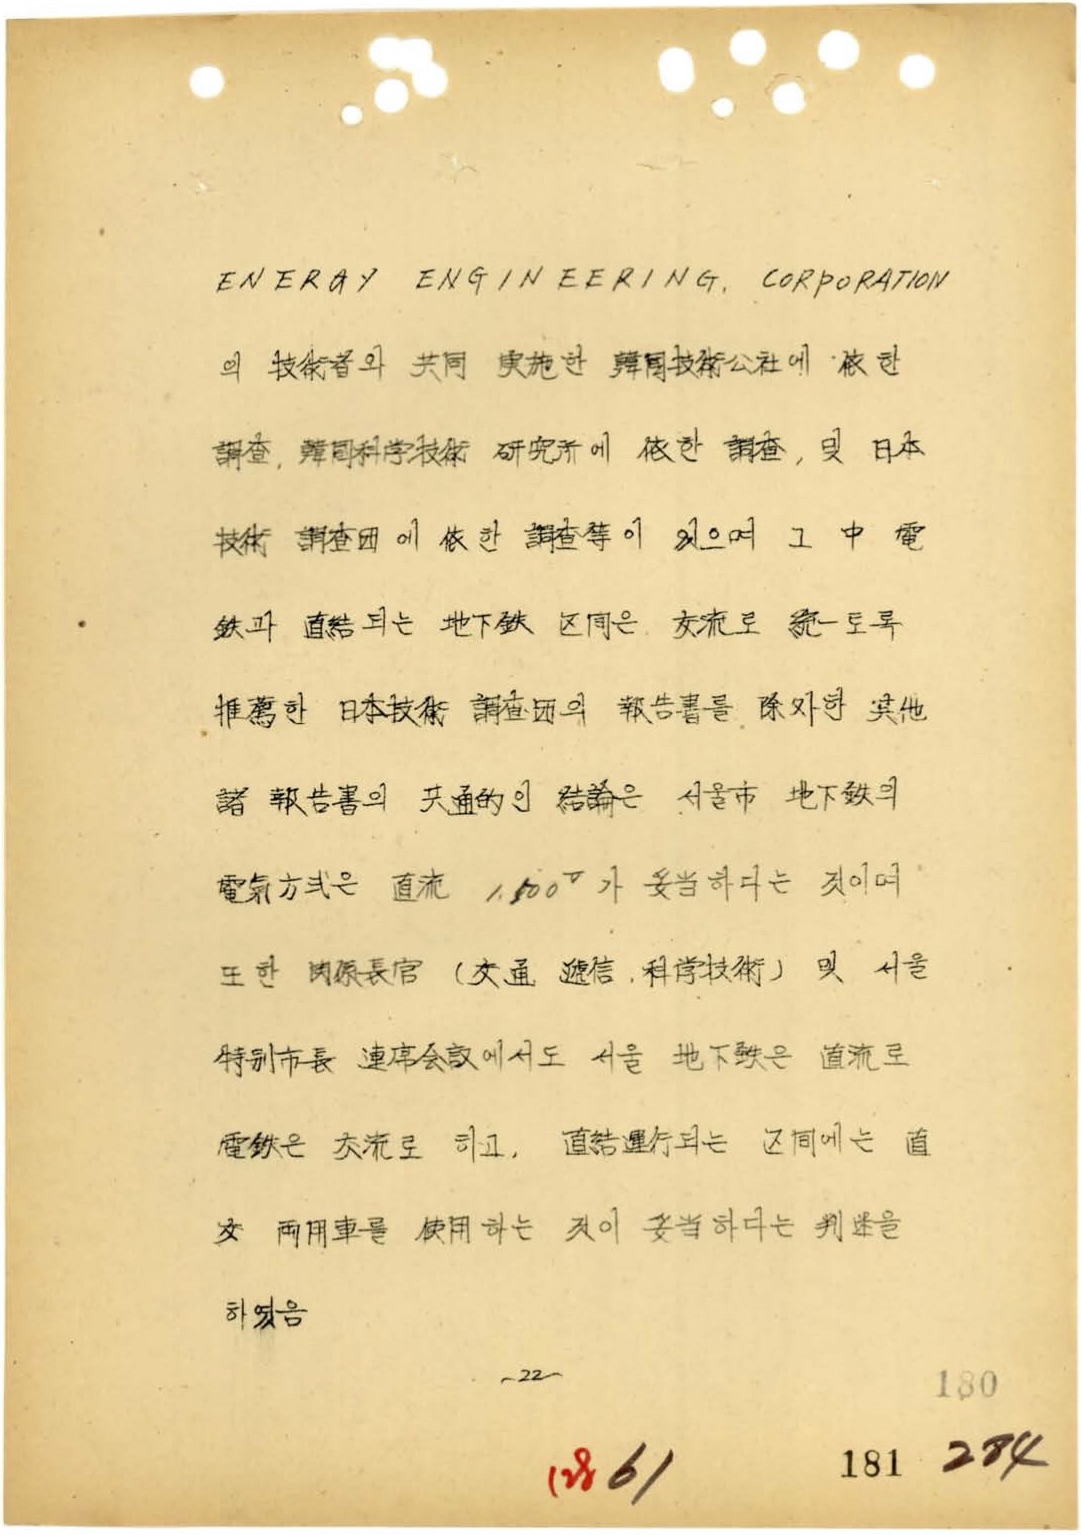 ENERGY ENGINEERING. CORPORATION
의 技術者와 共同 実施한 韓国技術公社에 依한
調査, 韓国科学技術 研究所에 依한 調査, 및 日本
技術 調査団에 依한 調査等이 있으며 그 中 電
鉄과 直結되는 地下鉄 区间은 交流로 統一토록
推薦한 日本技術 調査団의 報告書를 除外한 其他
諸 報告書의 共通的인 結論은 서울市 地下鉄의
電氣方式은 直流 1.500V가 妥当하다는 것이며
또한 関係長官 (交通 遞信, 科学技術) 및 서울
特别市長 連席会議에서도 서울 地下鉄은 直流로
電鉄은 交流로 하고, 直結運行되는 区间에는 直
交 両用車를 使用하는 것이 妥当하다는 判断을
하였음
-22-
180
128 61 181 284